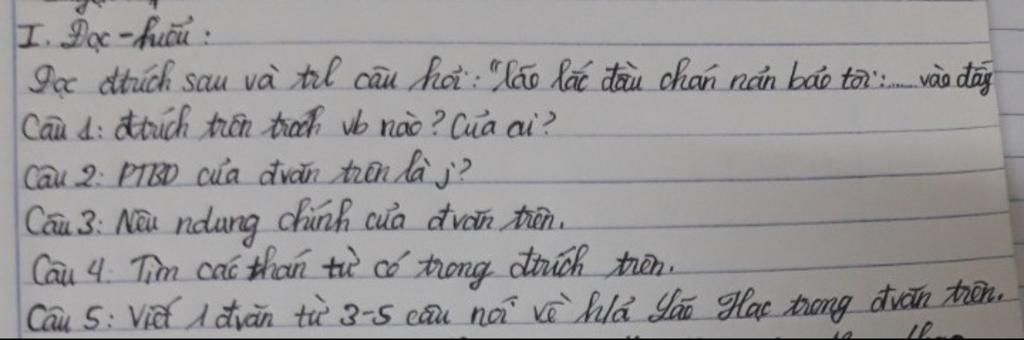 I. Đọc - hiểu :
Đọc đtrích sau và trl câu hỏi : "lão lắc đầu chán nản bảo tôi : ..... vào đấy
Câu 1 : đtrích trên trích vb nào ? Của ai ?
Câu 2 : PTBĐ của đvăn trên là j ?
Câu 3 : Nêu ndung chính của đvăn trên.
Câu 4 : Tìm các thán từ có trong đtrích trên.
Câu 5 : Viết 1 đvăn từ 3-5 câu nói về h/ả lão Hạc trong đvăn trên.